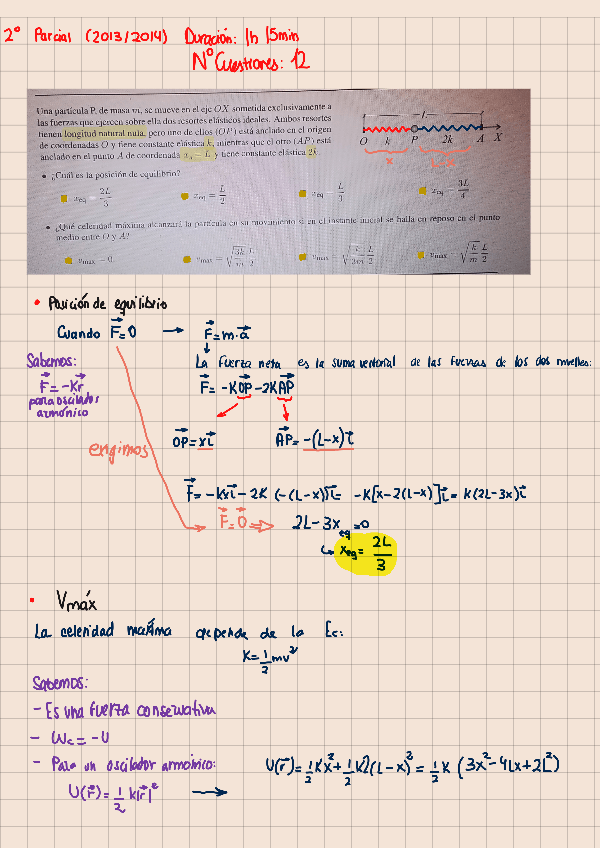 2º Parcial (2013/2014) Duración: 1h 15min
Nº Cuestiones: 12
Una partícula P, de masa m, se mueve en el eje OX sometida exclusivamente a
las fuerzas que ejercen sobre ella dos resortes elásticos ideales. Ambos resortes
tienen longitud natural nula, pero uno de ellos (OP) está anclado en el origen
de coordenadas O y tiene constante elástica k, mientras que el otro (AP) está
anclado en el punto A de coordenada x_A = L, y tiene constante elástica 2k.
L
O k P 2k A X
x L-x
• ¿Cuál es la posición de equilibrio?
x_eq = 2L/3 x_eq = L/2 x_eq = L/3 x_eq = 3L/4
• ¿Qué celeridad máxima alcanzará la partícula en su movimiento si en el instante inicial se halla en reposo en el punto
medio entre O y A?
v_max = 0 v_max = √(3k/m) L/2 v_max = √(k/3m) L/2 v_max = √(k/m) L/2
• Posición de equilibrio
Cuando F⃗=0 → F⃗=m·a⃗
Sabemos:
F⃗=-Kr⃗
para oscilador
armónico
La fuerza neta es la suma vectorial de las fuerzas de los dos muelles:
F⃗ = -KOP⃗ -2KAP⃗
OP⃗=xi⃗ AP⃗=-(L-x)i⃗
exigimos
F⃗=-Kxi⃗ - 2K (-(L-x))i⃗= -K[x-2(L-x)]i⃗= K(2L-3x)i⃗
F⃗=0⃗ ⇒ 2L-3x_eq=0
↳ x_eq= 2L/3
• Vmáx
La celeridad maxima depende de la Ec:
K=1/2 mv²
Sabemos:
- Es una fuerza conservativa
- Wc=-U
- Para un oscilador armónico:
U(r⃗)=1/2 k|r⃗|² →
U(r⃗)=1/2 Kx²+1/2 K2(L-x)²=1/2 K (3x²-4Lx+2L²)